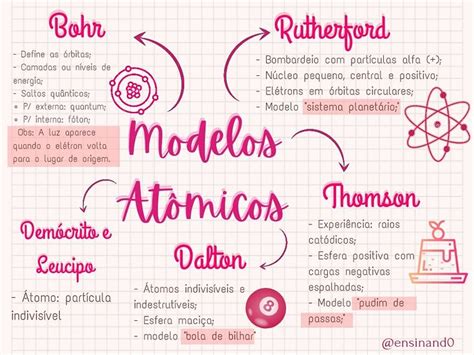 Bohr
- Define as órbitas;
- Camadas ou níveis de
energia;
- Saltos quânticos;
* P/ externa: quantum;
* P/ interna: fóton;
Obs: A luz aparece
quando o elétron volta
para o lugar de origem.
Rutherford
- Bombardeio com partículas alfa (+);
- Núcleo pequeno, central e positivo;
- Elétrons em órbitas circulares;
- Modelo "sistema planetário;"
Modelos
Atômicos
Demócrito e
Leucipo
- Átomo: partícula
indivisível
Dalton
- Átomos indivisíveis e
indestrutíveis;
- Esfera maciça;
- modelo "bola de bilhar"
8
Thomson
- Experiência: raios
catódicos;
- Esfera positiva com
cargas negativas
espalhadas;
- Modelo "pudim de
passas;"
@ensinand0